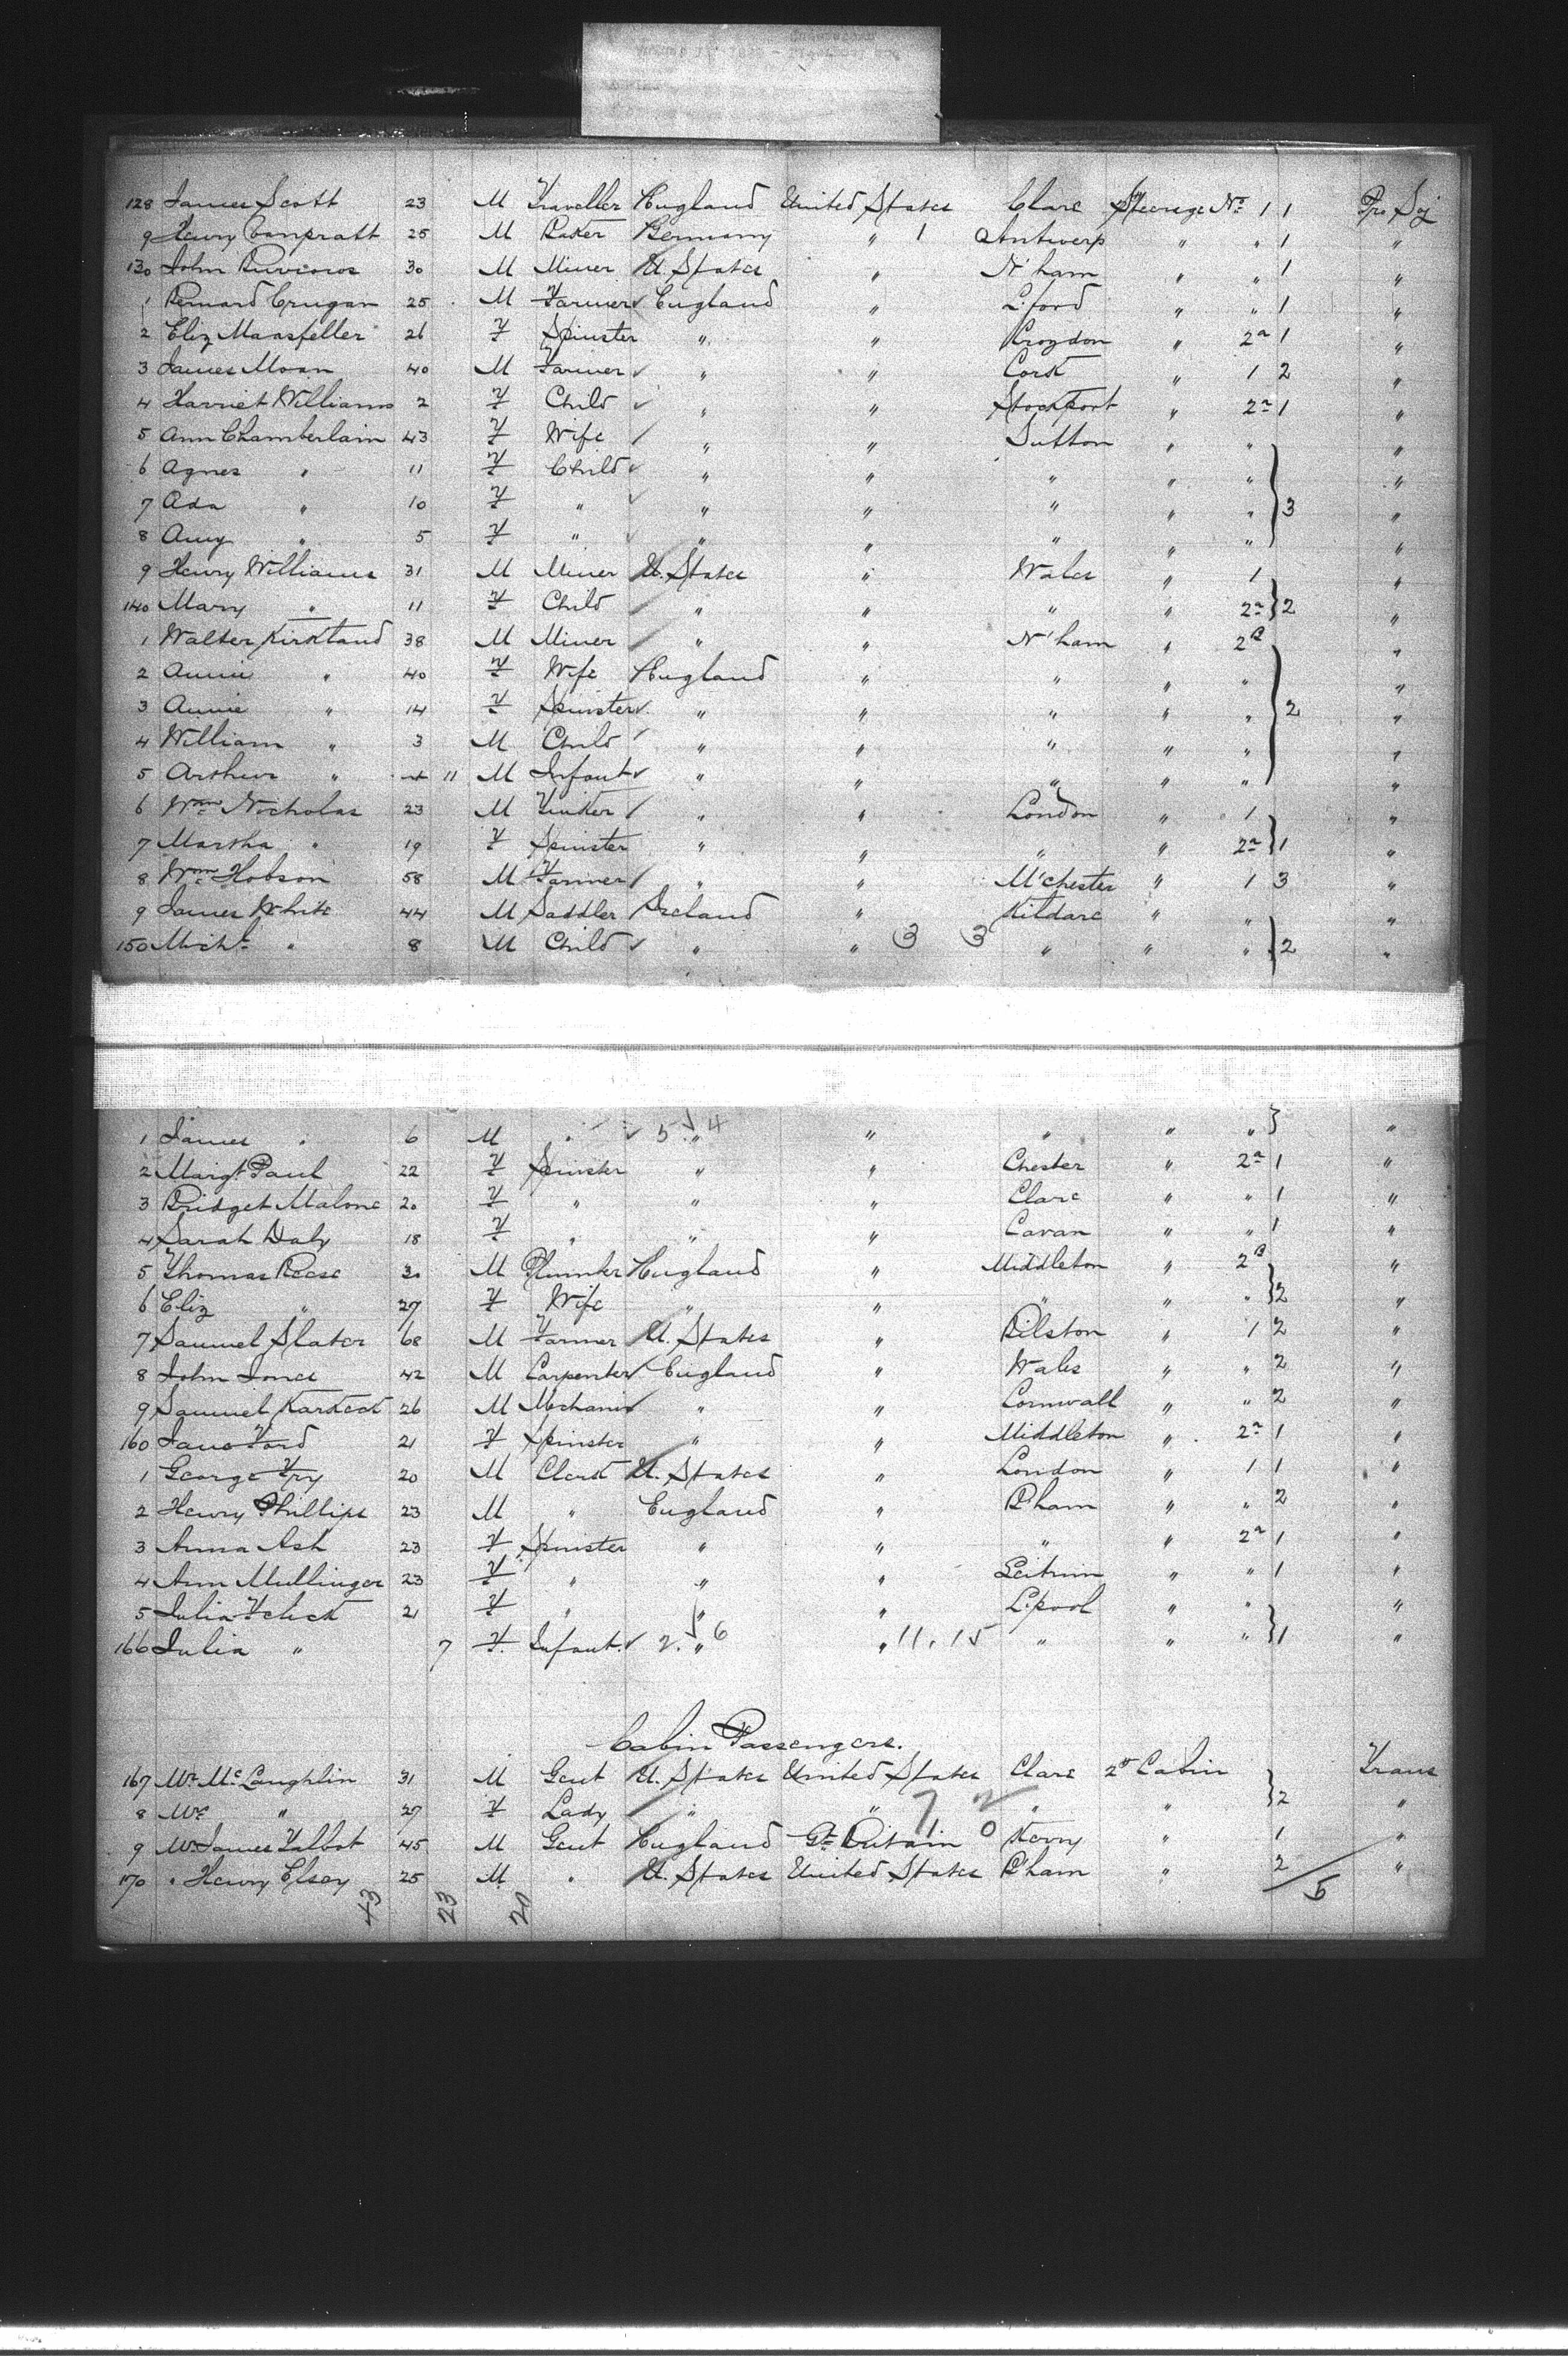 128 James Scott 23 M Traveller England United States Clare Steerage No 1 1 Pro Soj
9 Henry Conpratt 25 M Baker Germany " 1 Antwerp " " 1 "
130 John 30 M Miner U. States " N'ham " " 1 "
1 Bernard Crugan 25 M Farmer England " L'ford " " 1 "
2 Eliz Mansfeller 26 F Spinster " " Croydon " 2a 1 "
3 James Moan 40 M Farmer " " Cork " 1 2 "
4 Harriet Williams 2 F Child " " Stockport " 2a 1 "
5 Ann Chamberlain 43 F Wife " " Sutton " " "
6 Agnes " 11 F Child " " " " " "
7 Ada " 10 F " " " " " " 3 "
8 Amy " 5 F " " " " " " "
9 Henry Williams 31 M Miner U. States " Wales " 1 "
140 Mary " 11 F Child " " " " 2a 2 "
1 Walter Kirkland 38 M Miner " " N'ham " 2B "
2 Annie " 40 F Wife England " " " " "
3 Annie " 14 F Spinster " " " " " 2 "
4 William " 3 M Child " " " " " "
5 Arthur " 11 M Infant " " " " " "
6 Wm Nicholas 23 M Tinker " " London " 1 "
7 Martha " 19 F Spinster " " " " 2a 1 "
8 Wm Hobson 58 M Farmer " " M'chester " 1 3 "
9 James White 44 M Saddler Ireland " Kildare " " "
150 Michl " 8 M Child " " 3 3 " " " 2 "
1 James " 6 M " 5 " 4 " " " " "
2 Margt Paul 22 F Spinster " " Chester " 2a 1 "
3 Bridget Malone 20 F " " " Clare " " 1 "
4 Sarah Daly 18 F " " " Cavan " " 1 "
5 Thomas Reese 30 M Plumber England " Middleton " 2B "
6 Eliz " 27 F Wife " " " " " 2 "
7 Samuel Slater 68 M Farmer U. States " Bilston " 1 2 "
8 John Jones 42 M Carpenter England " Wales " " 2 "
9 Samuel Karkeek 26 M Mechanic " " Cornwall " " 2 "
160 Jane Ford 21 F Spinster " " Middleton " 2a 1 "
1 George Fry 20 M Clerk U. States " London " 1 1 "
2 Henry Phillips 23 M " England " B'ham " " 2 "
3 Anna Ash 23 F Spinster " " " " 2a 1 "
4 Ann Mullinger 23 F " " " Leitrim " " 1 "
5 Julia 21 F " " " L'pool " " "
166 Julia " 7 F Infant 2. " 6 " 11. 15 " " " 1 "
Cabin Passengers.
167 Mr McLaughlin 31 M Gent U. States United States Clare 2d Cabin Trans
8 Mrs " 27 F Lady " " 7 2 " " 2 "
9 Mr James Talbot 45 M Gent England Gt Britain 1 0 Kerry " 1 "
170 " Henry Elsey 25 M " U. States United States B'ham " 2 "
43 23 20 5